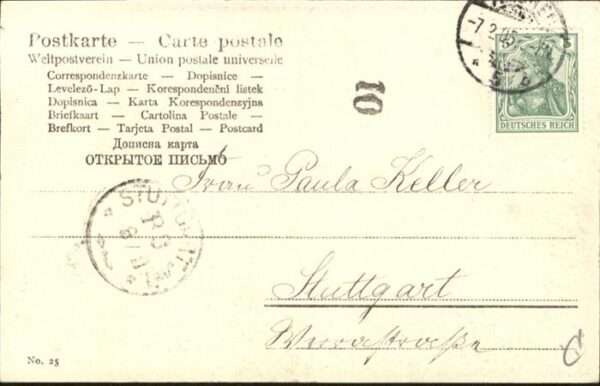 Postkarte — Carte postale
Weltpostverein — Union postale universelle
Correspondenzkarte — Dopisnice —
Levelező-Lap — Korespondenční listek
Dopisnica — Karta Korespondencyjna
Briefkaart — Cartolina Postale —
Brefkort — Tarjeta Postal — Postcard
Дописна карта
ОТКРЫТОЕ ПИСЬМО
10
-7.2.05
5
DEUTSCHES REICH
Frau Paula Keller
STUTTGART
Stuttgart
No. 25